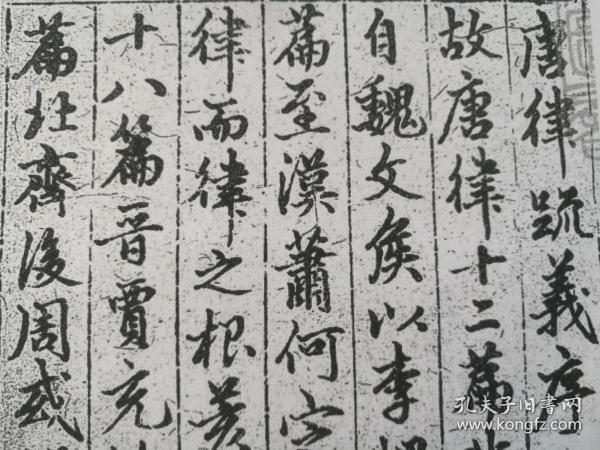 唐律疏義序
故唐律十二篇非
自魏文侯以李悝
篇至漢蕭何定
律而律之根荄
十八篇晉賈充
篇北齊後周或
孔夫子旧书网
www.kongfz.com